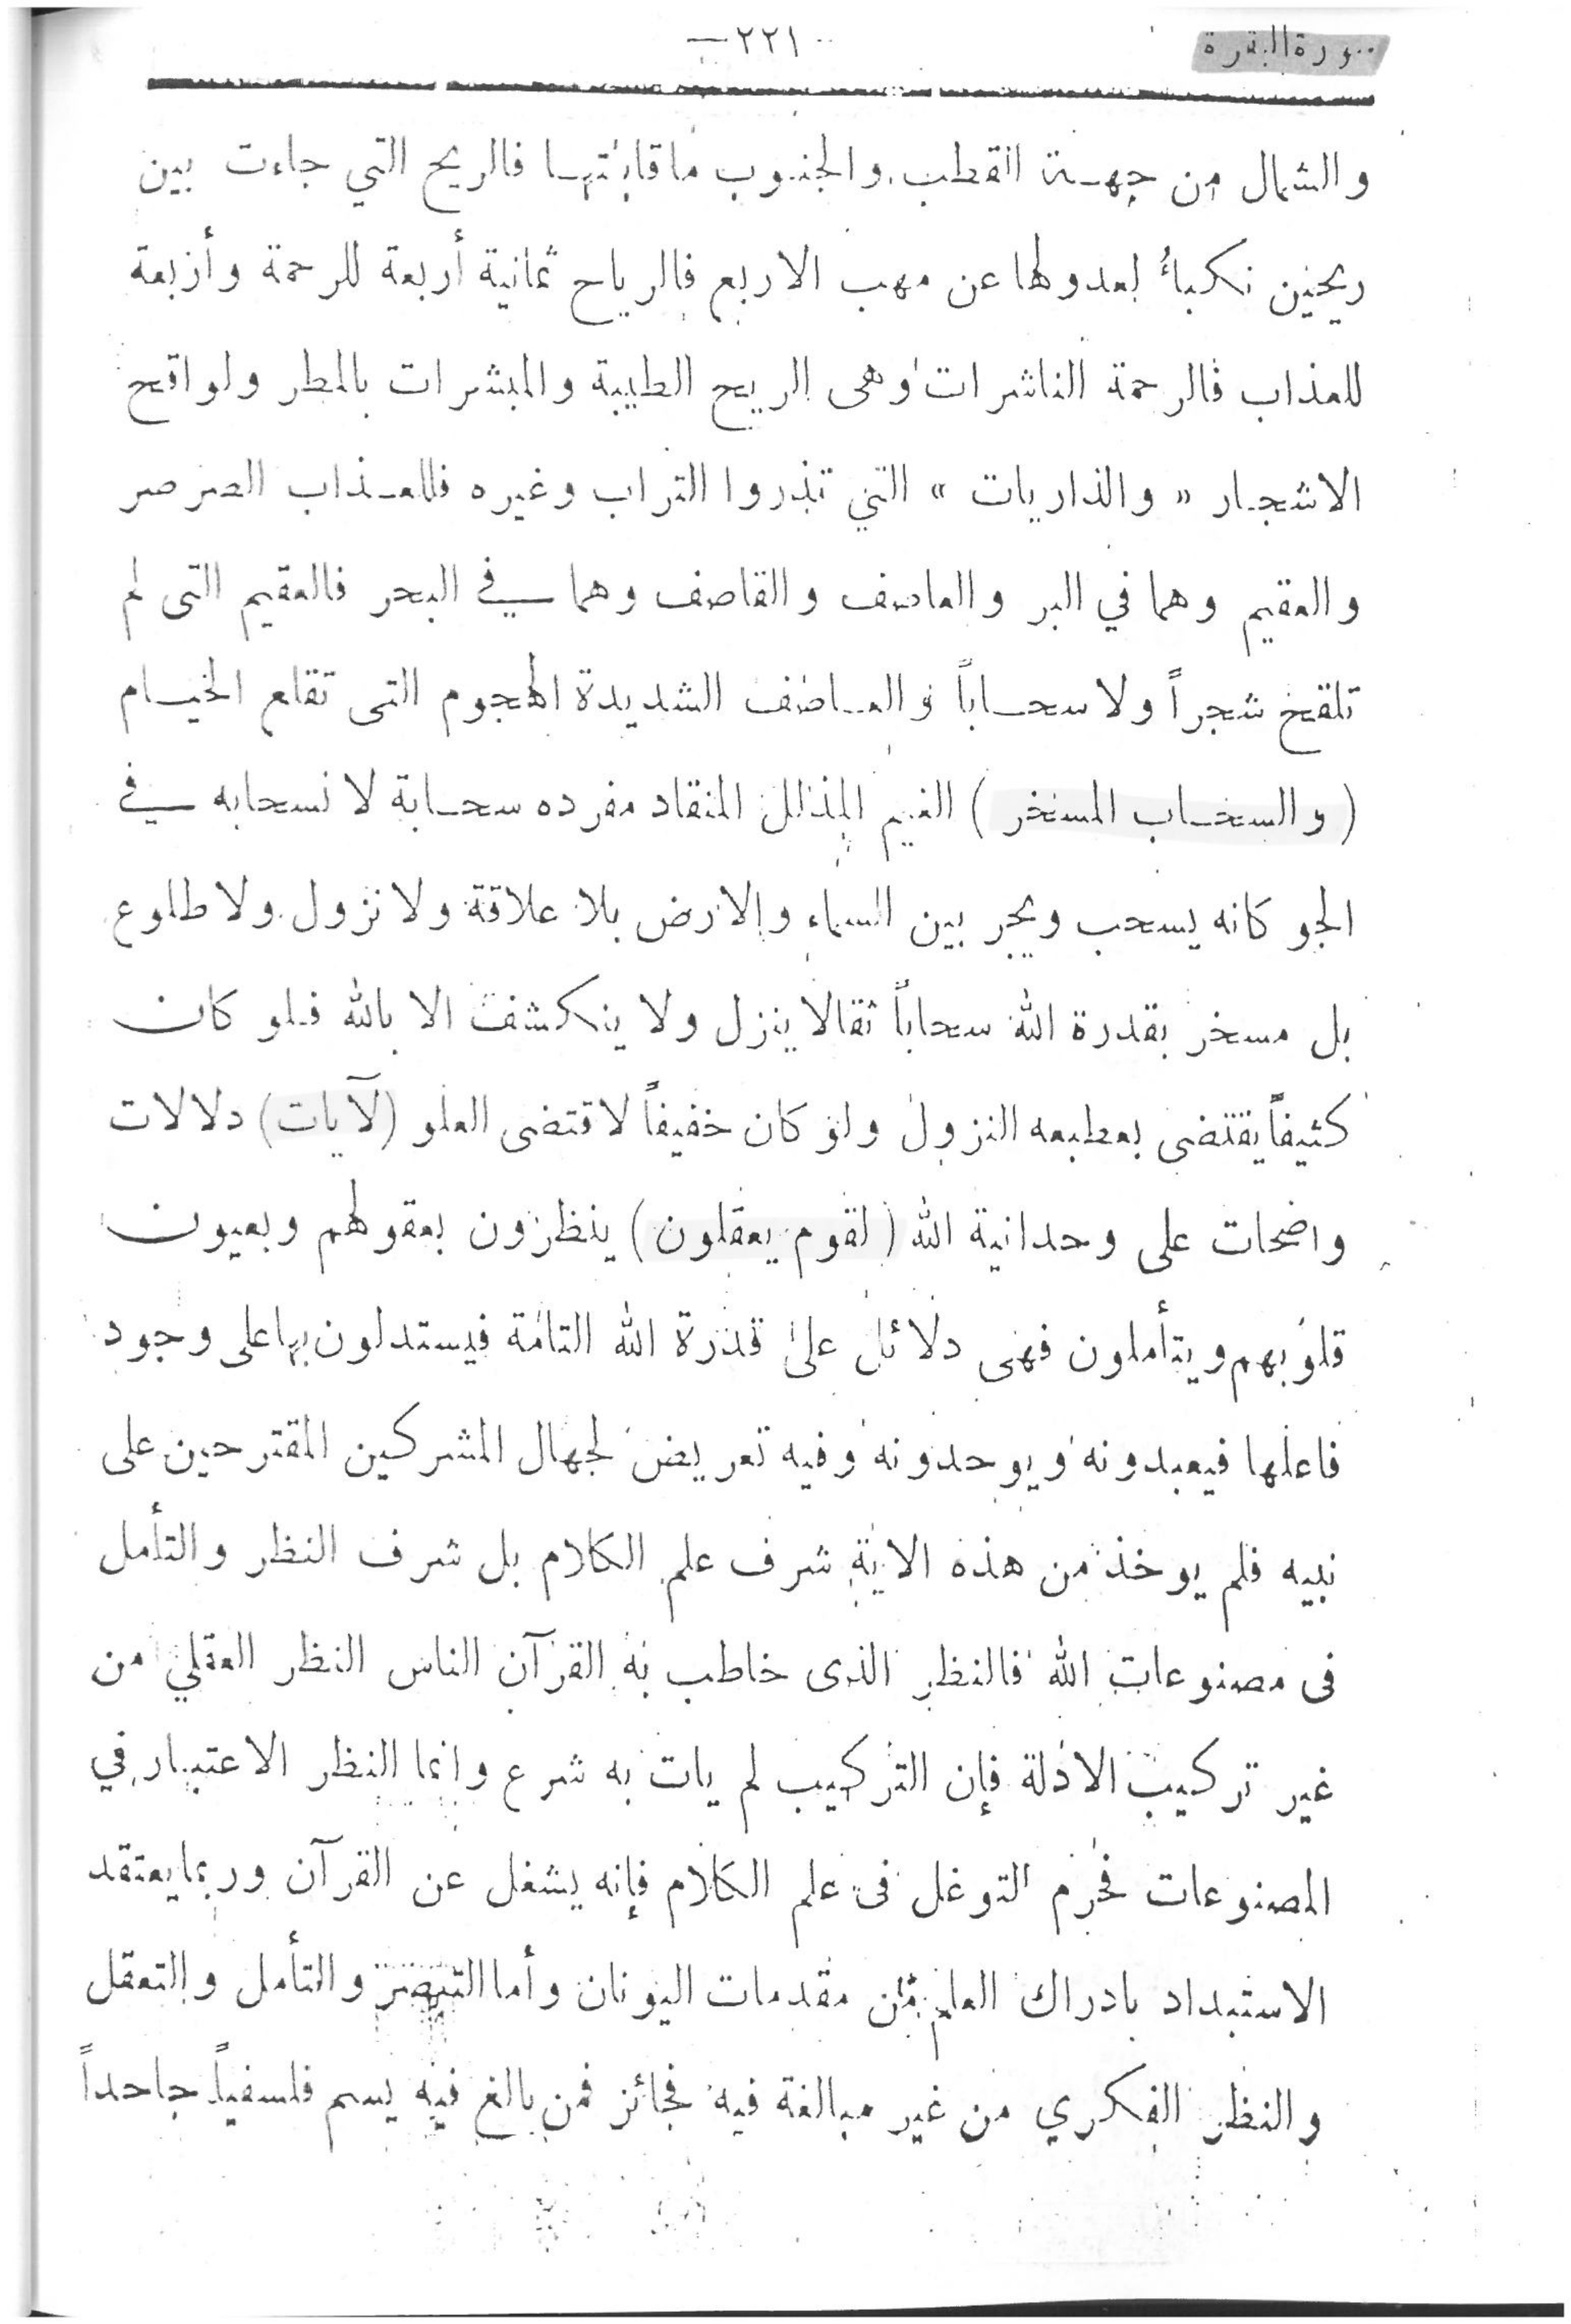 سورة البقرة
— ٢٢١ —
والشمال من جهة القطب والجنوب ما قابلتها فالريح التي جاءت بين
ريحين نكباء لعدولها عن مهب الاربع فالرياح ثمانية أربعة للرحمة وأربعة
للعذاب فالرحمة الناشرات وهى الريح الطيبة والمبشرات بالمطر ولواقح
الاشجار « والذاريات » التي تذروا التراب وغيره فللعذاب الصرصر
والعقيم وهما في البر والعاصف والقاصف وهما في البحر فالعقيم التى لم
تلقح شجراً ولا سحاباً والعاصف الشديدة الهجوم التى تقلع الخيام
( والسحاب المسخر ) الغيم المذلل المنقاد مفرده سحابة لانسحابه في
الجو كانه يسحب ويجر بين السماء والارض بلا علاقة ولا نزول ولا طلوع
بل مسخر بقدرة الله سحاباً ثقالا ينزل ولا ينكشف الا بالله فلو كان
كثيفاً يقتضى بعطبعه النزول ولو كان خفيفاً لاقتضى العلو (لآيات) دلالات
واضحات على وحدانية الله ( لقوم يعقلون ) ينظرون بعقولهم وبعيون
قلوبهم ويتأملون فهى دلائل على قدرة الله التامة فيستدلون بها على وجود
فاعلها فيعبدونه ويوحدونه وفيه تعريض لجهال المشركين المقترحين على
نبيه فلم يوخذ من هذه الاية شرف علم الكلام بل شرف النظر والتأمل
فى مصنوعات الله فالنظر الذى خاطب به القرآن الناس النظر العقلي من
غير تركيب الادلة فإن التركيب لم يات به شرع وانما النظر الاعتبار في
المصنوعات فحرم التوغل فى علم الكلام فإنه يشغل عن القرآن وربما يعتقد
الاستبداد بادراك العلم من مقدمات اليونان وأما التبصر والتأمل والتعقل
والنظر الفكري من غير مبالغة فيه فجائز فمن بالغ فيه يسم فلسفياً جاحداً